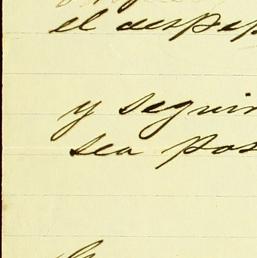 el despa
y seguir
sea pos